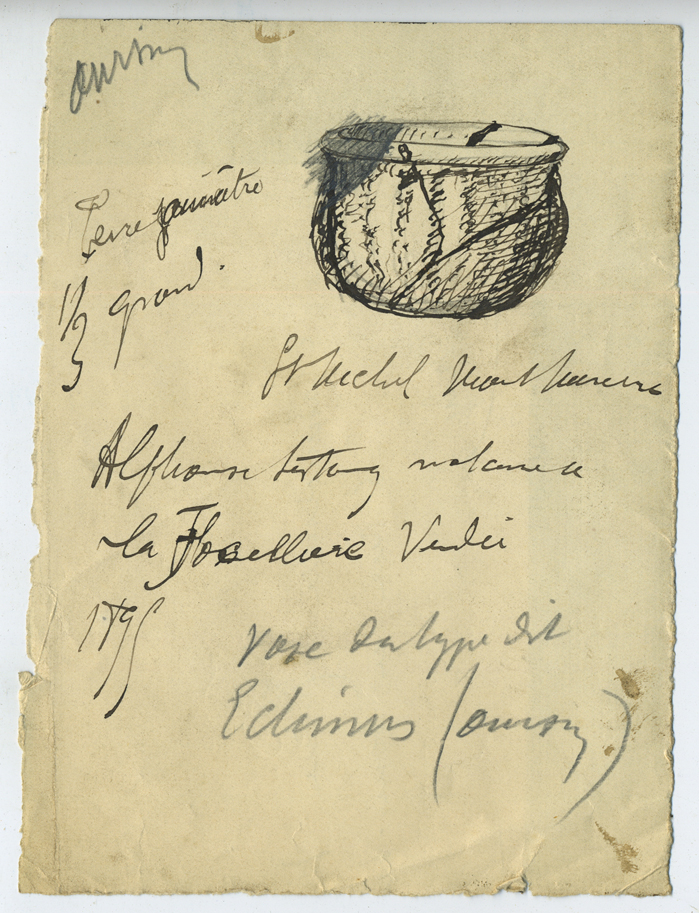 oursin
Terre jaunâtre
1/3 grand.
St Michel Mont Mercure
Alphonse notaire a
la Flocelliere Vendée
1895
Vase du type dit
Echinus (oursin)